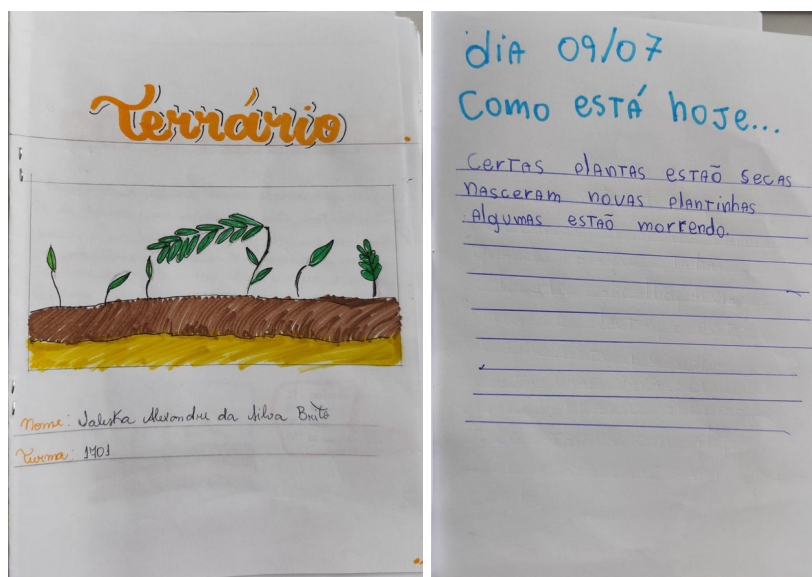 Terrário
Nome: Valeska Alexandre da Silva Brito
Turma: 1701
dia 09/07
Como está hoje...
Certas plantas estão secas
nasceram novas plantinhas
Algumas estão morrendo.